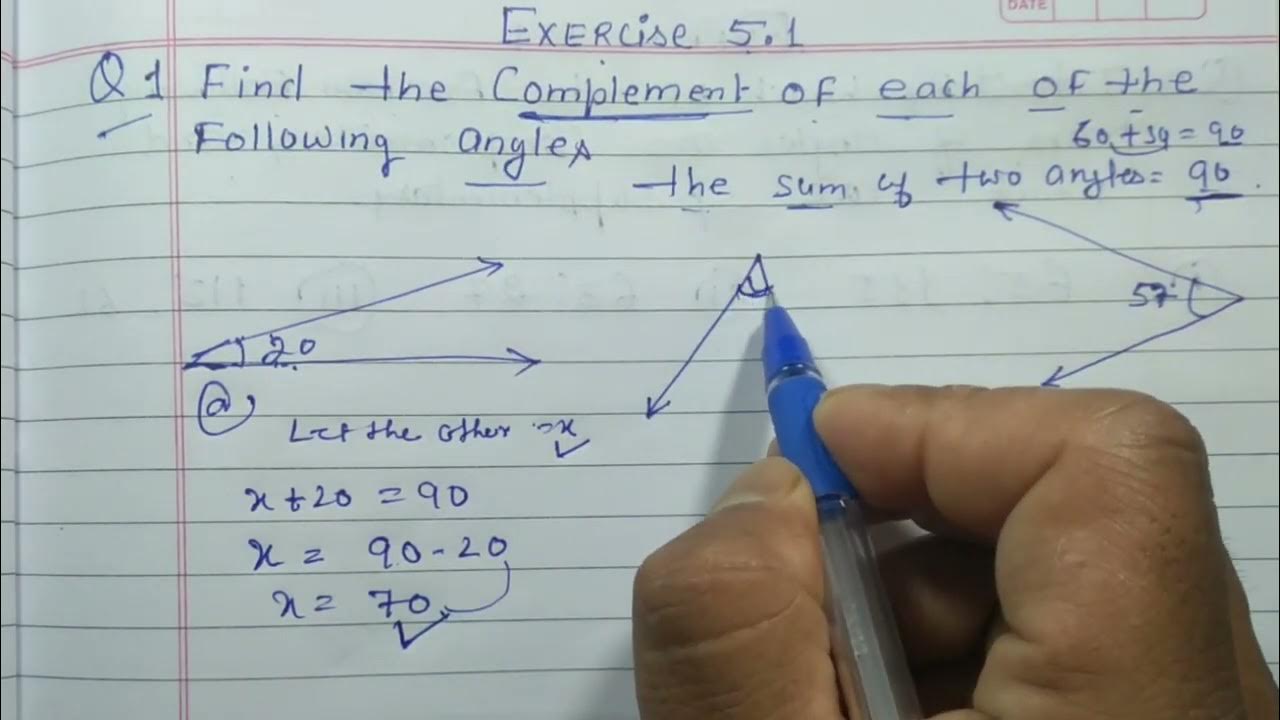 DATE
EXERCISE 5.1
Q1 Find the Complement of each of the
Following angles
60+30=90
the sum of two angles= 90.
20
57°
(a),
Let the other =x
x+20=90
x= 90-20
x= 70